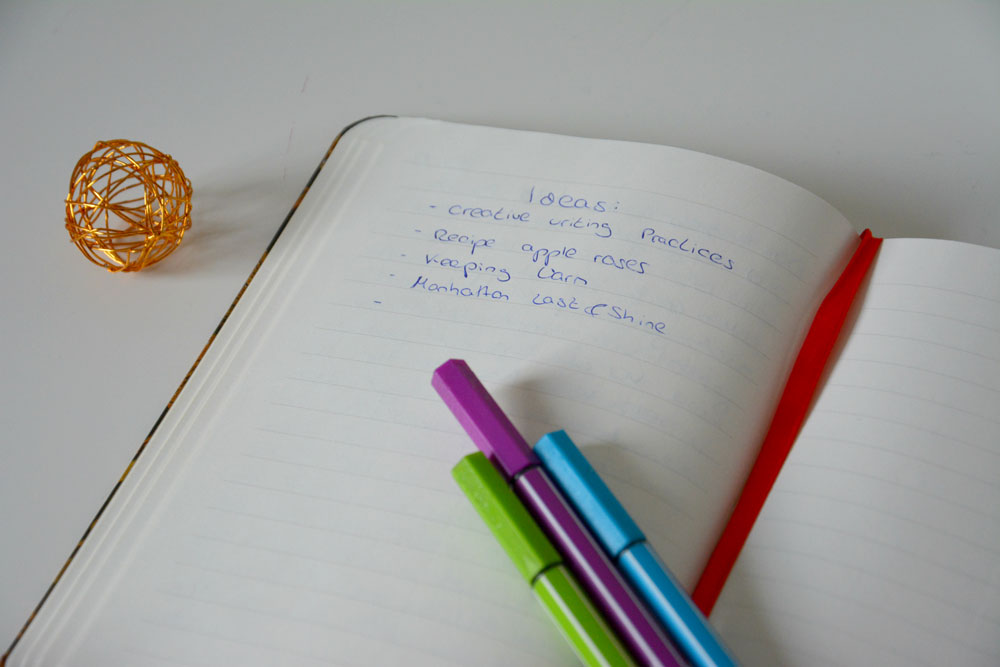 Ideas:
- creative writing Practices
- Recipe apple roses
- Keeping warm
- Manhattan Last & Shine
-